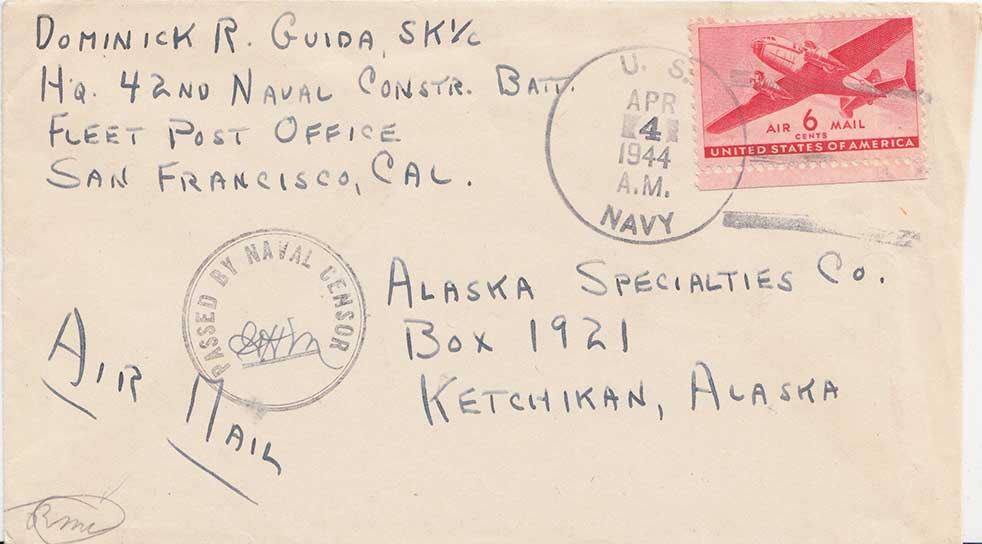 DOMINICK R. GUIDA, SK1/c
HQ. 42ND NAVAL CONSTR. BATT.
FLEET POST OFFICE
SAN FRANCISCO, CAL.
U. S.
APR
4
1944
A.M.
NAVY
AIR 6 MAIL
CENTS
UNITED STATES OF AMERICA
PASSED BY NAVAL CENSOR
ALASKA SPECIALTIES CO.
BOX 1921
KETCHIKAN, ALASKA
AIR MAIL